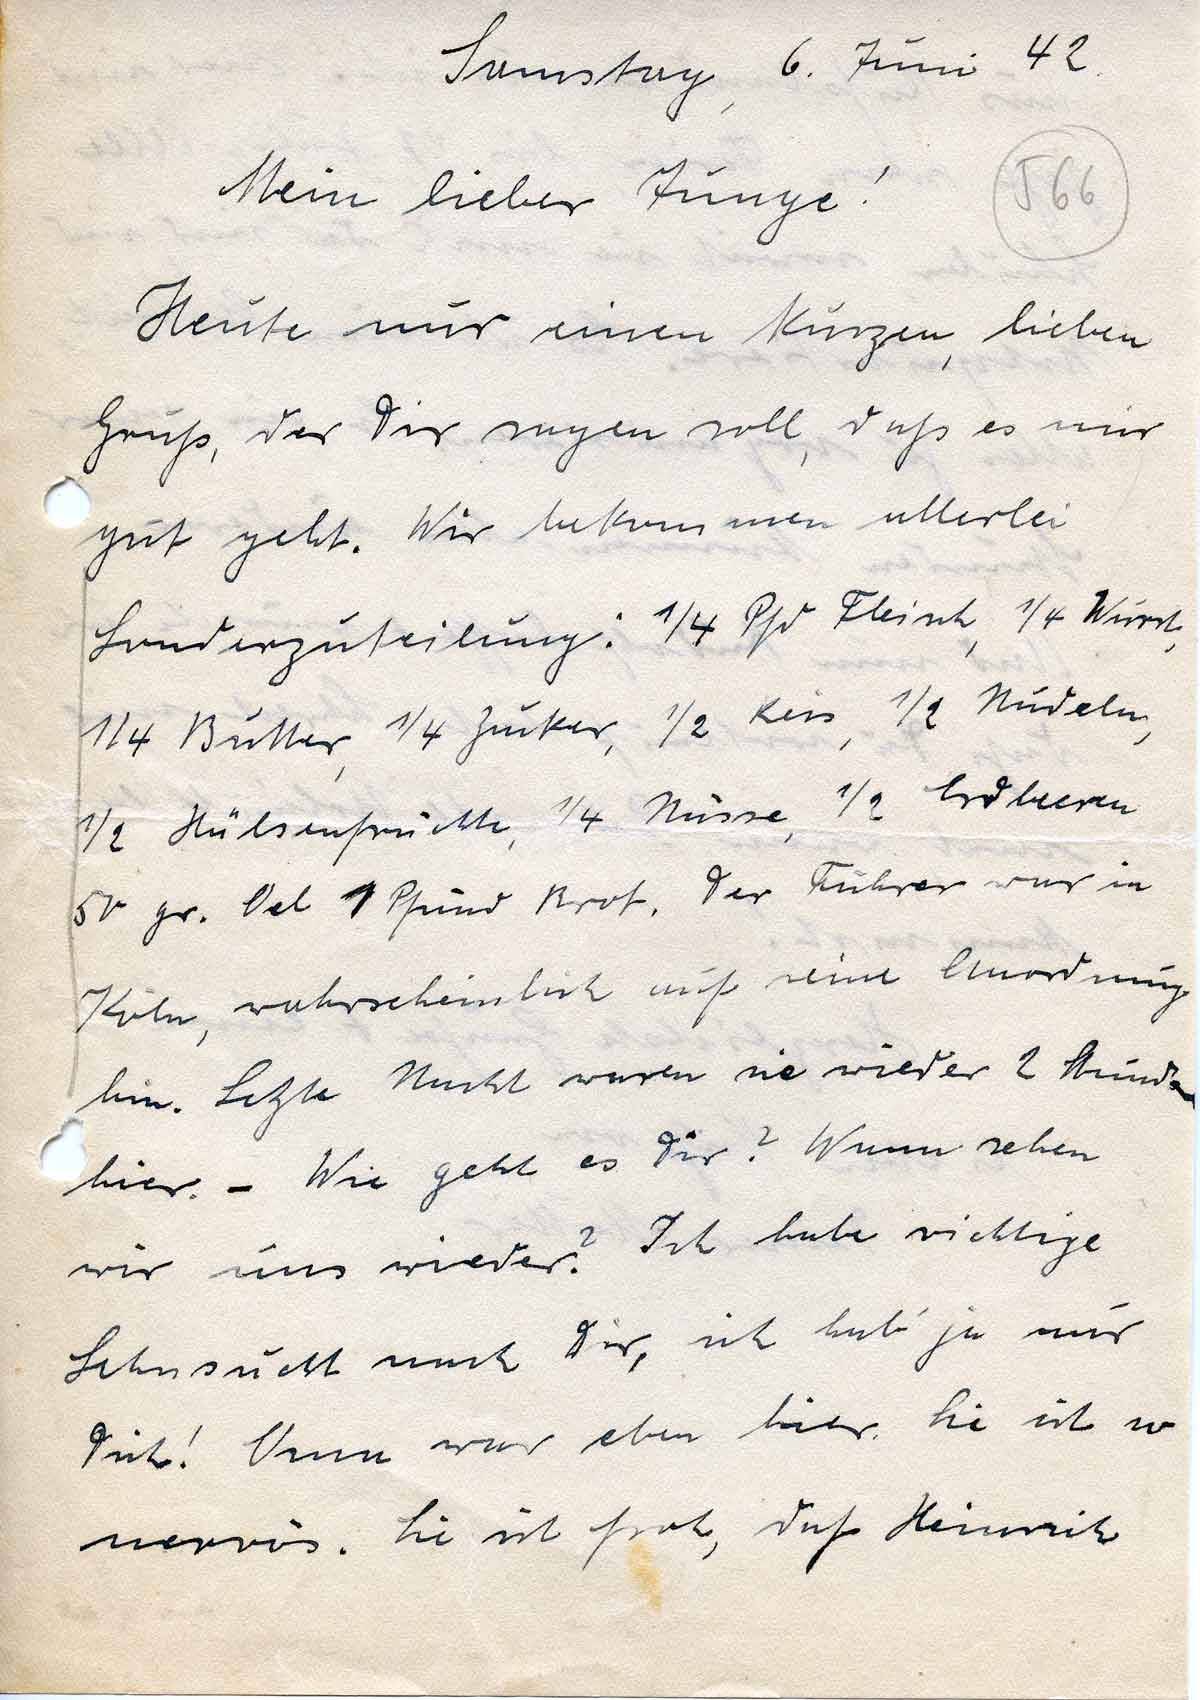 Samstag, 6. Juni 42.
I 66
Mein lieber Junge!
Heute nur einen kurzen, lieben
Gruß, der Dir sagen soll, daß es mir
gut geht. Wir bekommen allerlei
Sonderzuteilung: 1/4 Pfd Fleisch, 1/4 Wurst,
1/4 Butter, 1/4 Zucker, 1/2 Reis, 1/2 Nudeln,
1/2 Hülsenfrüchte, 1/4 Nüsse, 1/2 Erdbeeren
50 gr. Oel 1 Pfund Brot. Der Führer war in
Köln, wahrscheinlich auf seine Anordnung
hin. Letzte Nacht waren sie wieder 2 Stunden
hier. – Wie geht es Dir? Wann sehen
wir uns wieder? Ich habe richtige
Sehnsucht nach Dir, ich hab' ja nur
Dich! Änne war eben hier. Sie ist so
nervös. Sie ist froh, daß Heinrich